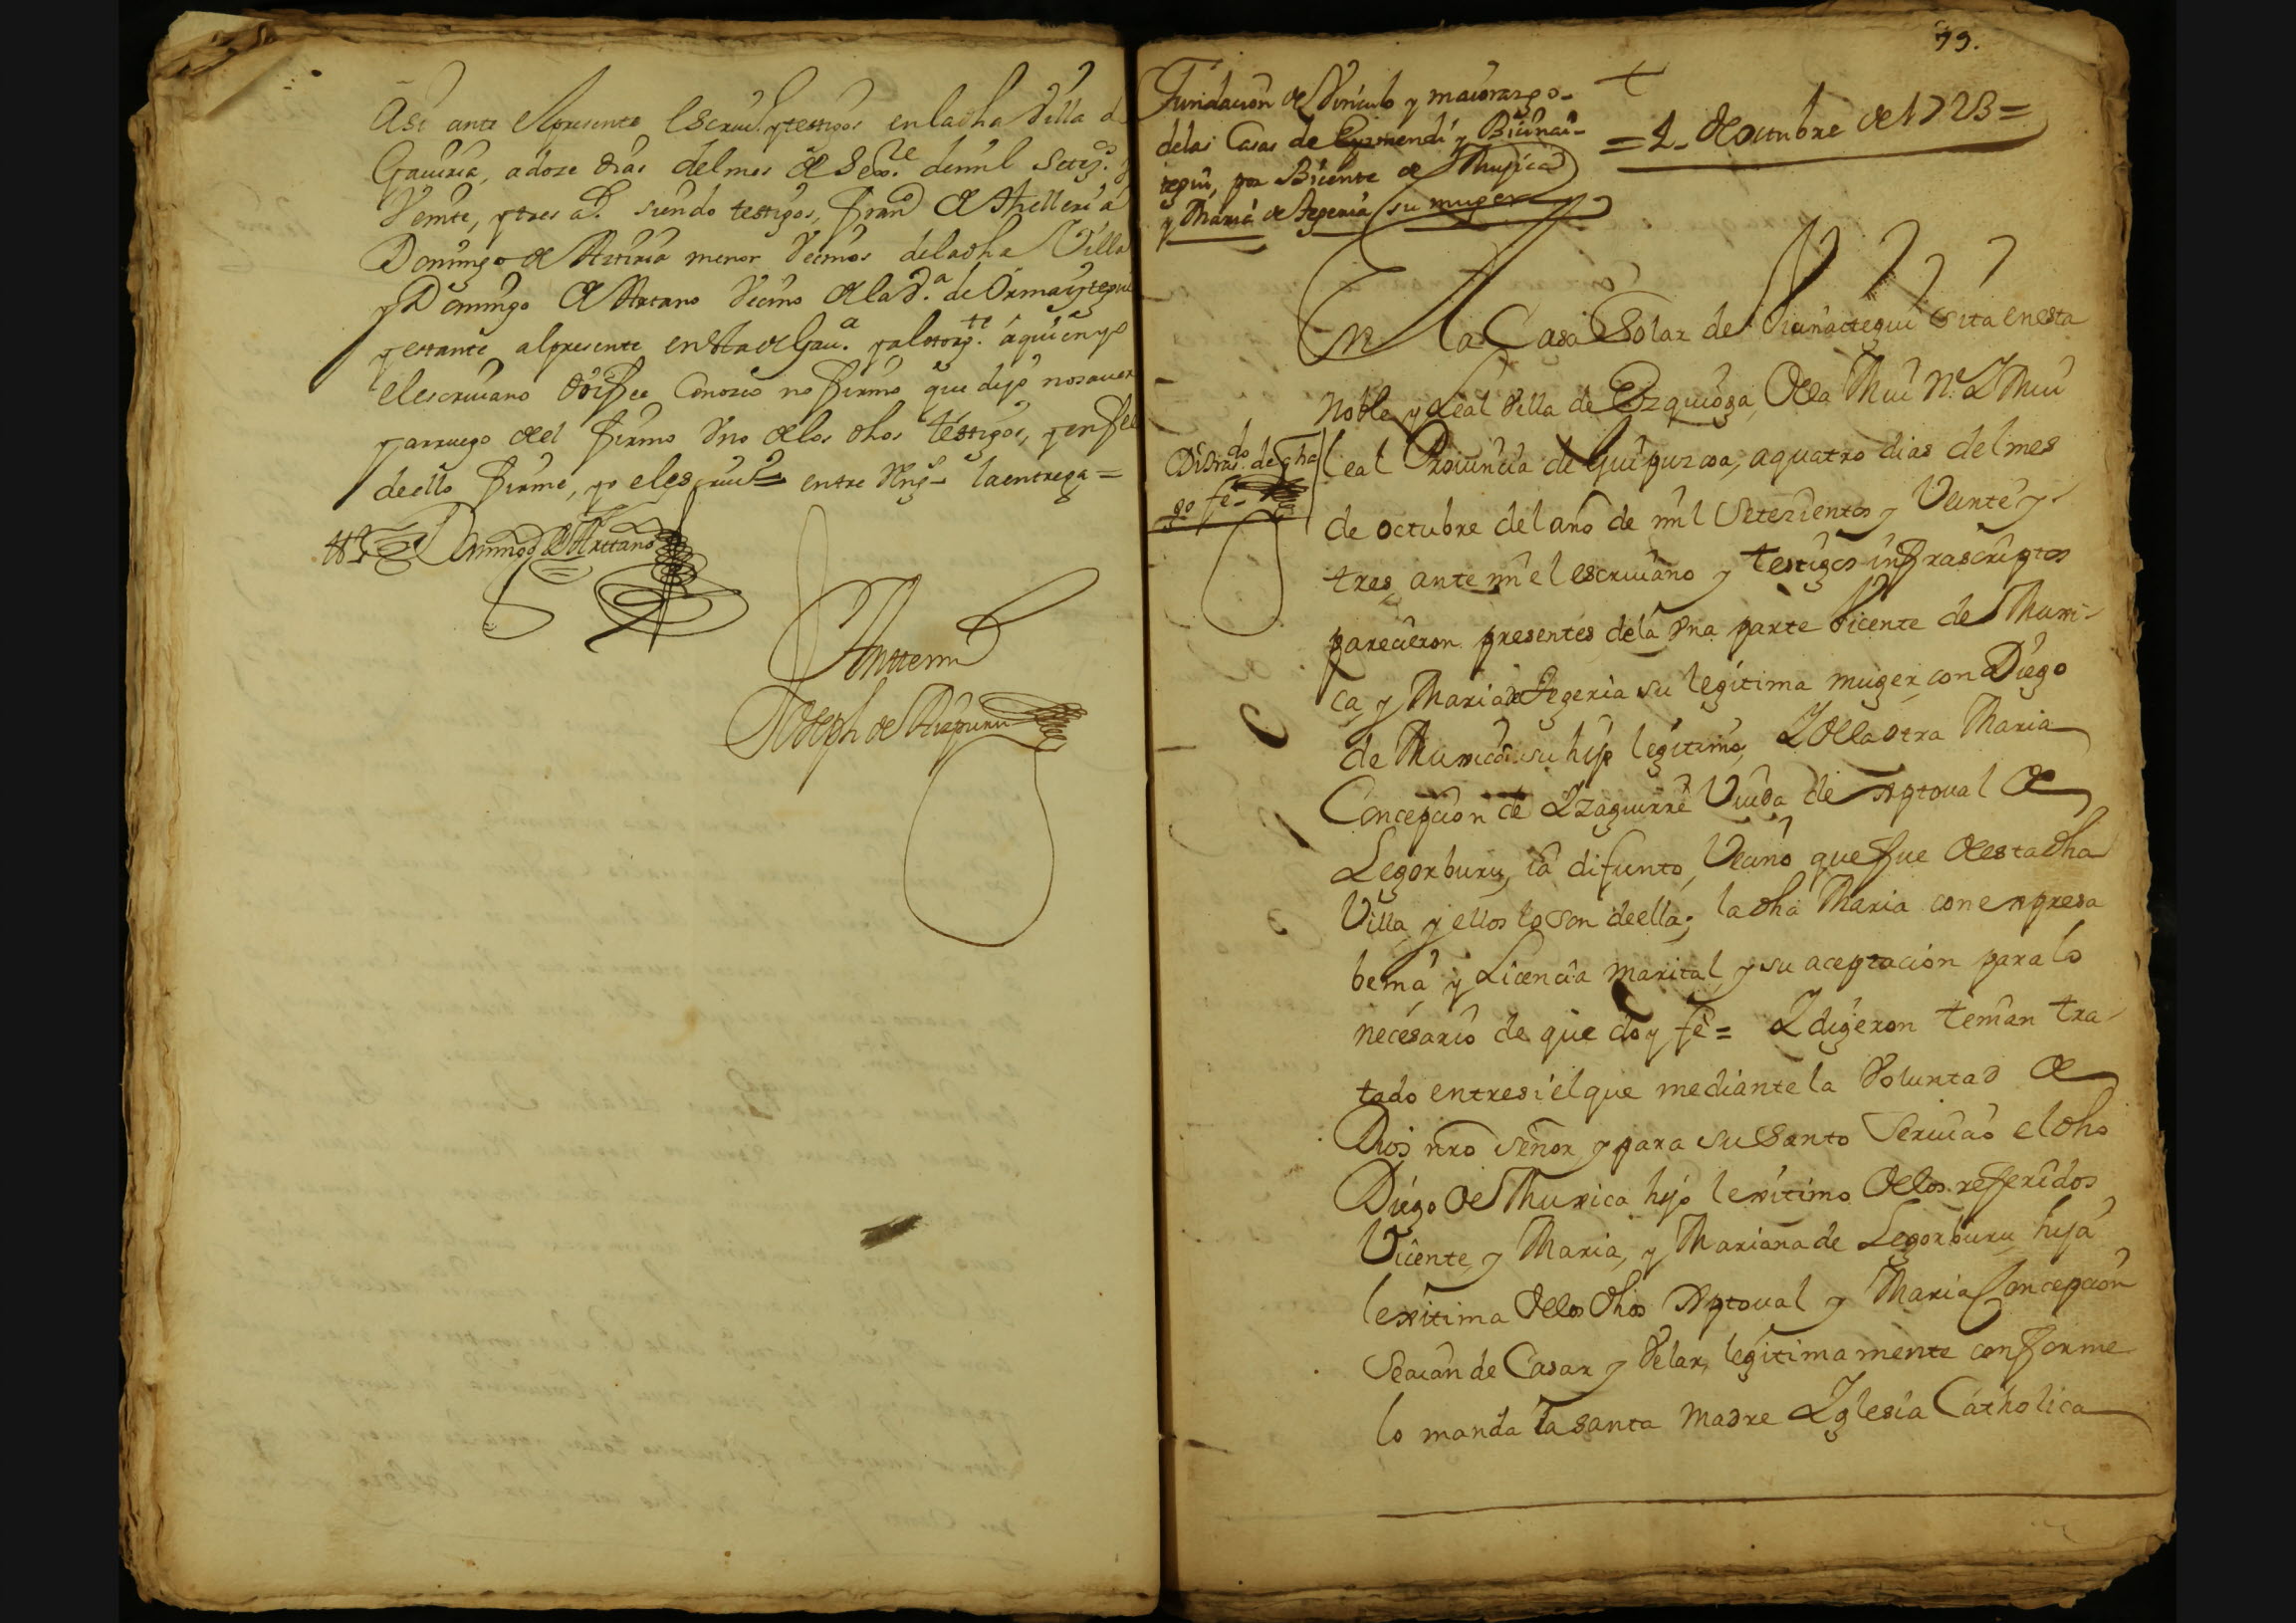 Asi ante el presente escriu.º y testigos en la dha Villa d
Gauiria, a doze dias del mes de Sep.re de mil setez.s y
Veinte, y tres a.s siendo testigos, Fran.co de Atelleria
Domingo de Arriria menor Vecinos de la dha Villa
y Domingo de Arrano Vecino de la V.a de Ormaiztegui
y estante al presente en esta de Gau.a y al otorg.te a quien yo
el escriuano doi fee conozco no firmo que dijo no sauer
y a rruego de el firmo Vno de los dhos testigos, y en fee
de ello firme, yo el escriu.º = entre Rng.s la entrega =
t.º Domingo de Arrano
Ante mi
Joseph de Aizpuru
79.
Fundacion de Vinculo y maiorazgo
de las Casas de Eizmendi y Bicinai-
tegui, por Bicente de Mugica
y Maria de Zegeria su muger
= 4 de octubre de 1723 =
En la Casa Solar de Vicinaitegui sita en esta
Noble y Leal Villa de Ezquioga, de la Mui N.e Y Mui
leal Prouincia de Guipuzcoa, a quatro dias del mes
de octubre del año de mil Setezientos y Veinte y
tres, ante mi el escriuano y testigos infrascriptos
parecieron presentes de la Vna parte Vicente de Muxi-
ca, y Maria de Zegeria su legitima muger, con Diego
de Muxica su hijo legitimo, Y de la otra Maria
Concepcion de Yzaguirre Viuda de Xptoual de
Legorburu, ia difunto, Vecino que fue de esta dha
Villa, y ellos lo son de ella; la dha Maria con expresa
benia y Licencia marital, y su aceptacion para lo
necesario de que doy fe = Y digeron tenian tra-
tado entre si el que mediante la Voluntad de
Dios nro Señor y para su Santo Seruicio el dho
Diego de Muxica hijo lexitimo de los referidos
Vicente y Maria, y Mariana de Legorburu hija
lexitima de los dhos Xptoual y Maria Concepcion
se aian de Casar y Velar, legitimamente conforme
lo manda la santa Madre Yglesia Catholica